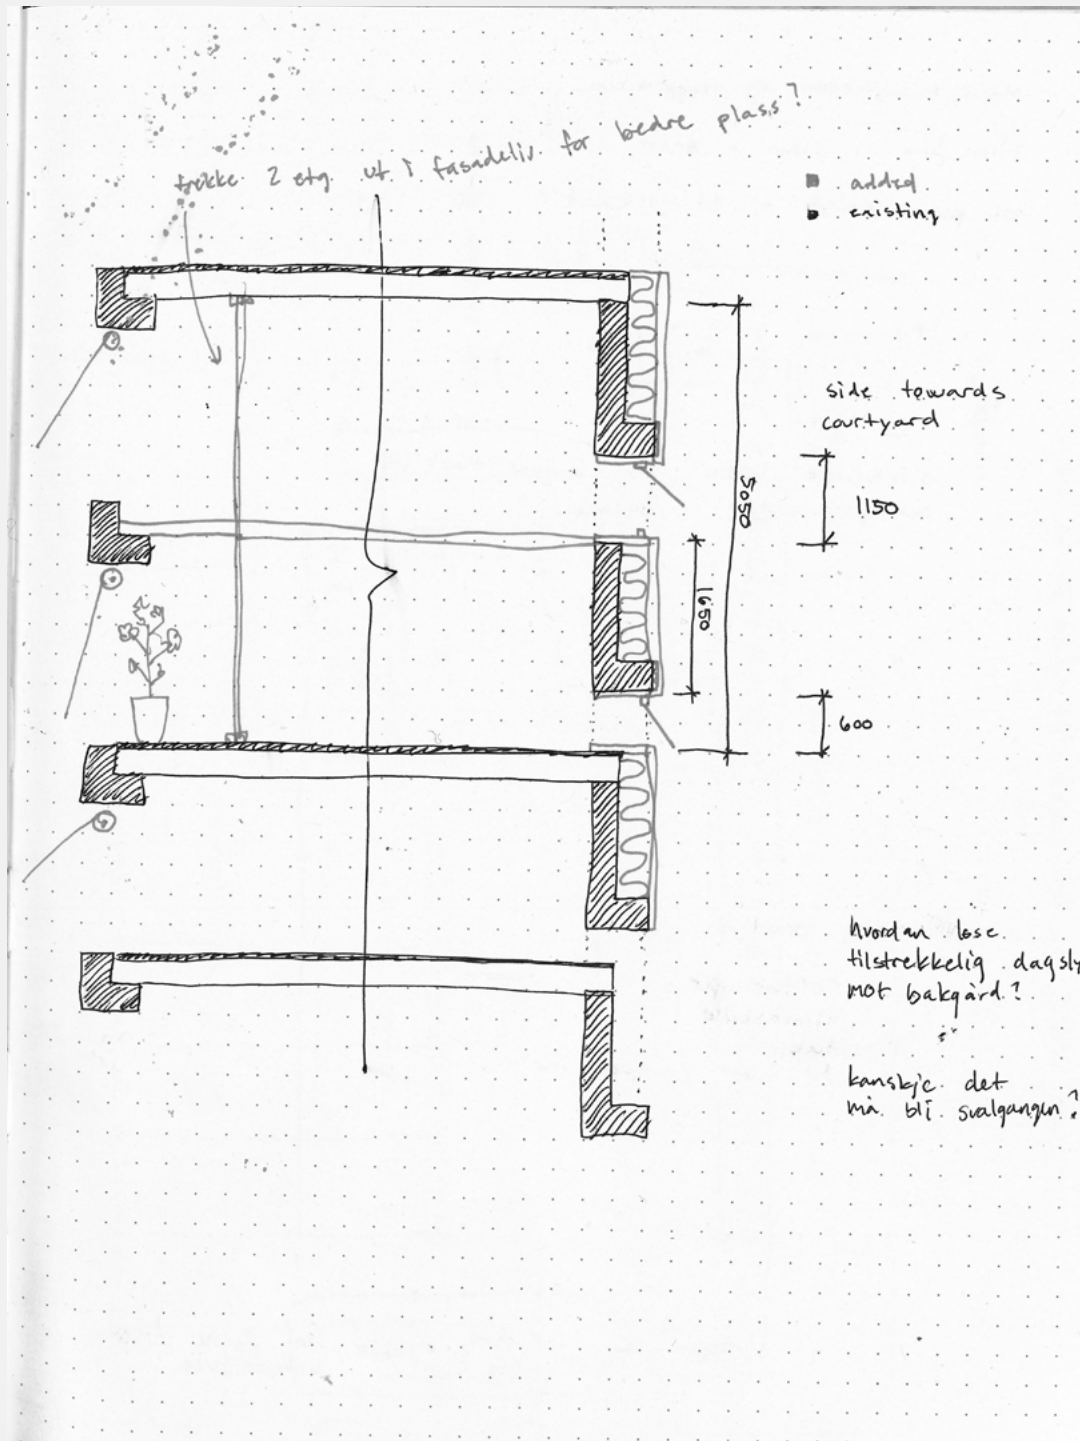 trekke 2 etg ut i fasadeliv for bedre plass?
added
existing
side towards
courtyard
1150
5050
1650
600
hvordan løse
tilstrekkelig dagsly
mot bakgård?
kanskje det
må bli svalgangen?